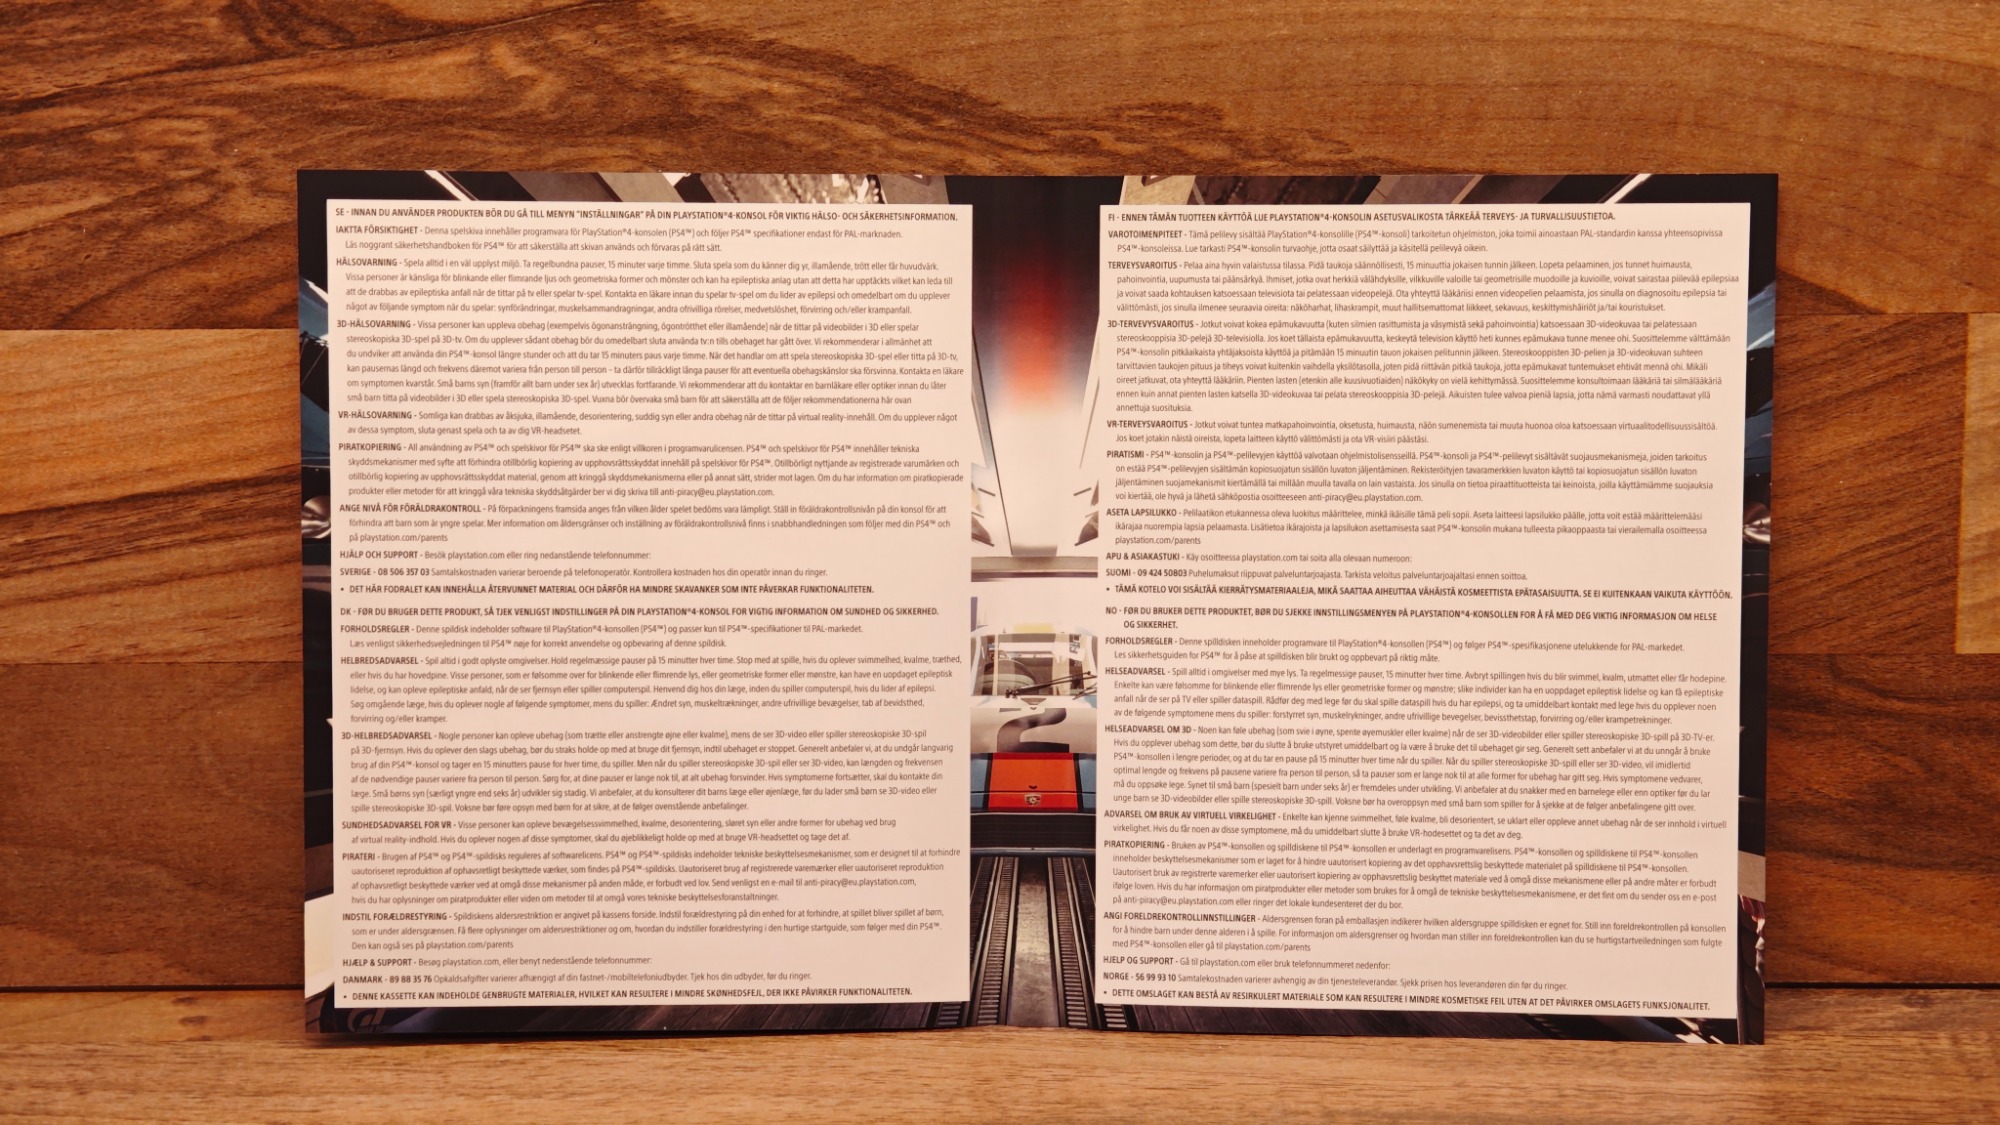 SE - INNAN DU ANVÄNDER PRODUKTEN BÖR DU GÅ TILL MENYN "INSTÄLLNINGAR" PÅ DIN PLAYSTATION®4-KONSOL FÖR VIKTIG HÄLSO- OCH SÄKERHETSINFORMATION.
IAKTTA FÖRSIKTIGHET - Denna spelskiva innehåller programvara för PlayStation®4-konsolen (PS4™) och följer PS4™ specifikationer endast för PAL-marknaden.
Läs noggrant säkerhetshandboken för PS4™ för att säkerställa att skivan används och förvaras på rätt sätt.
HÄLSOVARNING - Spela alltid i en väl upplyst miljö. Ta regelbundna pauser, 15 minuter varje timme. Sluta spela som du känner dig yr, illamående, trött eller får huvudvärk.
Vissa personer är känsliga för blinkande eller flimrande ljus och geometriska former och mönster och kan ha epileptiska anlag utan att detta har upptäckts vilket kan leda till
att de drabbas av epileptiska anfall när de tittar på tv eller spelar tv-spel. Kontakta en läkare innan du spelar tv-spel om du lider av epilepsi och omedelbart om du upplever
något av följande symptom när du spelar: synförändringar, muskelsammandragningar, andra ofrivilliga rörelser, medvetslöshet, förvirring och/eller krampanfall.
3D-HÄLSOVARNING - Vissa personer kan uppleva obehag (exempelvis ögonansträngning, ögontrötthet eller illamående) när de tittar på videobilder i 3D eller spelar
stereoskopiska 3D-spel på 3D-tv. Om du upplever sådant obehag bör du omedelbart sluta använda tv:n tills obehaget har gått över. Vi rekommenderar i allmänhet att
du undviker att använda din PS4™-konsol längre stunder och att du tar 15 minuters paus varje timme. När det handlar om att spela stereoskopiska 3D-spel eller titta på 3D-tv,
kan pausernas längd och frekvens däremot variera från person till person – ta därför tillräckligt långa pauser för att eventuella obehagskänslor ska försvinna. Kontakta en läkare
om symptomen kvarstår. Små barns syn (framför allt barn under sex år) utvecklas fortfarande. Vi rekommenderar att du kontaktar en barnläkare eller optiker innan du låter
små barn titta på videobilder i 3D eller spela stereoskopiska 3D-spel. Vuxna bör övervaka små barn för att säkerställa att de följer rekommendationerna här ovan
VR-HÄLSOVARNING - Somliga kan drabbas av åksjuka, illamående, desorientering, suddig syn eller andra obehag när de tittar på virtual reality-innehåll. Om du upplever något
av dessa symptom, sluta genast spela och ta av dig VR-headsetet.
PIRATKOPIERING - All användning av PS4™ och spelskivor för PS4™ ska ske enligt villkoren i programvarulicensen. PS4™ och spelskivor för PS4™ innehåller tekniska
skyddsmekanismer med syfte att förhindra otillbörlig kopiering av upphovsrättsskyddat innehåll på spelskivor för PS4™. Otillbörligt nyttjande av registrerade varumärken och
otillbörlig kopiering av upphovsrättsskyddat material, genom att kringgå skyddsmekanismerna eller på annat sätt, strider mot lagen. Om du har information om piratkopierade
produkter eller metoder för att kringgå våra tekniska skyddsåtgärder ber vi dig skriva till anti-piracy@eu.playstation.com.
ANGE NIVÅ FÖR FÖRÄLDRAKONTROLL - På förpackningens framsida anges från vilken ålder spelet bedöms vara lämpligt. Ställ in föräldrakontrollsnivån på din konsol för att
förhindra att barn som är yngre spelar. Mer information om åldersgränser och inställning av föräldrakontrollsnivå finns i snabbhandledningen som följer med din PS4™ och
på playstation.com/parents
HJÄLP OCH SUPPORT - Besök playstation.com eller ring nedanstående telefonnummer:
SVERIGE - 08 506 357 03 Samtalskostnaden varierar beroende på telefonoperatör. Kontrollera kostnaden hos din operatör innan du ringer.
• DET HÄR FODRALET KAN INNEHÅLLA ÅTERVUNNET MATERIAL OCH DÄRFÖR HA MINDRE SKAVANKER SOM INTE PÅVERKAR FUNKTIONALITETEN.
DK - FØR DU BRUGER DETTE PRODUKT, SÅ TJEK VENLIGST INDSTILLINGER PÅ DIN PLAYSTATION®4-KONSOL FOR VIGTIG INFORMATION OM SUNDHED OG SIKKERHED.
FORHOLDSREGLER - Denne spildisk indeholder software til PlayStation®4-konsollen (PS4™) og passer kun til PS4™-specifikationer til PAL-markedet.
Læs venligst sikkerhedsvejledningen til PS4™ nøje for korrekt anvendelse og opbevaring af denne spildisk.
HELBREDSADVARSEL - Spil altid i godt oplyste omgivelser. Hold regelmæssige pauser på 15 minutter hver time. Stop med at spille, hvis du oplever svimmelhed, kvalme, træthed,
eller hvis du har hovedpine. Visse personer, som er følsomme over for blinkende eller flimrende lys, eller geometriske former eller mønstre, kan have en uopdaget epileptisk
lidelse, og kan opleve epileptiske anfald, når de ser fjernsyn eller spiller computerspil. Henvend dig hos din læge, inden du spiller computerspil, hvis du lider af epilepsi.
Søg omgående læge, hvis du oplever nogle af følgende symptomer, mens du spiller: Ændret syn, muskeltrækninger, andre ufrivillige bevægelser, tab af bevidsthed,
forvirring og/eller kramper.
3D-HELBREDSADVARSEL - Nogle personer kan opleve ubehag (som trætte eller anstrengte øjne eller kvalme), mens de ser 3D-video eller spiller stereoskopiske 3D-spil
på 3D-fjernsyn. Hvis du oplever den slags ubehag, bør du straks holde op med at bruge dit fjernsyn, indtil ubehaget er stoppet. Generelt anbefaler vi, at du undgår langvarig
brug af din PS4™-konsol og tager en 15 minutters pause for hver time, du spiller. Men når du spiller stereoskopiske 3D-spil eller ser 3D-video, kan længden og frekvensen
af de nødvendige pauser variere fra person til person. Sørg for, at dine pauser er lange nok til, at alt ubehag forsvinder. Hvis symptomerne fortsætter, skal du kontakte din
læge. Små børns syn (særligt yngre end seks år) udvikler sig stadig. Vi anbefaler, at du konsulterer dit barns læge eller øjenlæge, før du lader små børn se 3D-video eller
spille stereoskopiske 3D-spil. Voksne bør føre opsyn med børn for at sikre, at de følger ovenstående anbefalinger.
SUNDHEDSADVARSEL FOR VR - Visse personer kan opleve bevægelsessvimmelhed, kvalme, desorientering, sløret syn eller andre former for ubehag ved brug
af virtual reality-indhold. Hvis du oplever nogen af disse symptomer, skal du øjeblikkeligt holde op med at bruge VR-headsettet og tage det af.
PIRATERI - Brugen af PS4™ og PS4™-spildisks reguleres af softwarelicens. PS4™ og PS4™-spildisks indeholder tekniske beskyttelsesmekanismer, som er designet til at forhindre
uautoriseret reproduktion af ophavsretligt beskyttede værker, som findes på PS4™-spildisks. Uautoriseret brug af registrerede varemærker eller uautoriseret reproduktion
af ophavsretligt beskyttede værker ved at omgå disse mekanismer på anden måde, er forbudt ved lov. Send venligst en e-mail til anti-piracy@eu.playstation.com,
hvis du har oplysninger om piratprodukter eller viden om metoder til at omgå vores tekniske beskyttelsesforanstaltninger.
INDSTIL FORÆLDRESTYRING - Spildiskens aldersrestriktion er angivet på kassens forside. Indstil forældrestyring på din enhed for at forhindre, at spillet bliver spillet af børn,
som er under aldersgrænsen. Få flere oplysninger om aldersrestriktioner og om, hvordan du indstiller forældrestyring i den hurtige startguide, som følger med din PS4™.
Den kan også ses på playstation.com/parents
HJÆLP & SUPPORT - Besøg playstation.com, eller benyt nedenstående telefonnummer:
DANMARK - 89 88 35 76 Opkaldsafgifter varierer afhængigt af din fastnet-/mobiltelefoniudbyder. Tjek hos din udbyder, før du ringer.
• DENNE KASSETTE KAN INDEHOLDE GENBRUGTE MATERIALER, HVILKET KAN RESULTERE I MINDRE SKØNHEDSFEJL, DER IKKE PÅVIRKER FUNKTIONALITETEN.
FI - ENNEN TÄMÄN TUOTTEEN KÄYTTÖÄ LUE PLAYSTATION®4-KONSOLIN ASETUSVALIKOSTA TÄRKEÄÄ TERVEYS- JA TURVALLISUUSTIETOA.
VAROTOIMENPITEET - Tämä pelilevy sisältää PlayStation®4-konsolille (PS4™-konsoli) tarkoitetun ohjelmiston, joka toimii ainoastaan PAL-standardin kanssa yhteensopivissa
PS4™-konsoleissa. Lue tarkasti PS4™-konsolin turvaohje, jotta osaat säilyttää ja käsitellä pelilevyä oikein.
TERVEYSVAROITUS - Pelaa aina hyvin valaistussa tilassa. Pidä taukoja säännöllisesti, 15 minuuttia jokaisen tunnin jälkeen. Lopeta pelaaminen, jos tunnet huimausta,
pahoinvointia, uupumusta tai päänsärkyä. Ihmiset, jotka ovat herkkiä välähdyksille, vilkkuville valoille tai geometrisille muodoille ja kuvioille, voivat sairastaa piilevää epilepsiaa
ja voivat saada kohtauksen katsoessaan televisiota tai pelatessaan videopelejä. Ota yhteyttä lääkäriisi ennen videopelien pelaamista, jos sinulla on diagnosoitu epilepsia tai
välittömästi, jos sinulla ilmenee seuraavia oireita: näköharhat, lihaskrampit, muut hallitsemattomat liikkeet, sekavuus, keskittymishäiriöt ja/tai kouristukset.
3D-TERVEYSVAROITUS - Jotkut voivat kokea epämukavuutta (kuten silmien rasittumista ja väsymistä sekä pahoinvointia) katsoessaan 3D-videokuvaa tai pelatessaan
stereoskooppisia 3D-pelejä 3D-televisiolla. Jos koet tällaista epämukavuutta, keskeytä television käyttö heti kunnes epämukava tunne menee ohi. Suosittelemme välttämään
PS4™-konsolin pitkäaikaista yhtäjaksoista käyttöä ja pitämään 15 minuutin tauon jokaisen pelitunnin jälkeen. Stereoskooppisten 3D-pelien ja 3D-videokuvan suhteen
tarvittavien taukojen pituus ja tiheys voivat kuitenkin vaihdella yksilötasolla, joten pidä riittävän pitkiä taukoja, jotta epämukavat tuntemukset ehtivät mennä ohi. Mikäli
oireet jatkuvat, ota yhteyttä lääkäriin. Pienten lasten (etenkin alle kuusivuotiaiden) näkökyky on vielä kehittymässä. Suosittelemme konsultoimaan lääkäriä tai silmälääkäriä
ennen kuin annat pienten lasten katsella 3D-videokuvaa tai pelata stereoskooppisia 3D-pelejä. Aikuisten tulee valvoa pieniä lapsia, jotta nämä varmasti noudattavat yllä
annettuja suosituksia.
VR-TERVEYSVAROITUS - Jotkut voivat tuntea matkapahoinvointia, oksetusta, huimausta, näön sumenemista tai muuta huonoa oloa katsoessaan virtuaalitodellisuussisältöä.
Jos koet jotakin näistä oireista, lopeta laitteen käyttö välittömästi ja ota VR-visiiri päästäsi.
PIRATISMI - PS4™-konsolin ja PS4™-pelilevyjen käyttöä valvotaan ohjelmistolisensseillä. PS4™-konsoli ja PS4™-pelilevyt sisältävät suojausmekanismeja, joiden tarkoitus
on estää PS4™-pelilevyjen sisältämän kopiosuojatun sisällön luvaton jäljentäminen. Rekisteröityjen tavaramerkkien luvaton käyttö tai kopiosuojatun sisällön luvaton
jäljentäminen suojamekanismit kiertämällä tai millään muulla tavalla on lain vastaista. Jos sinulla on tietoa piraattituotteista tai keinoista, joilla käyttämiämme suojauksia
voi kiertää, ole hyvä ja lähetä sähköpostia osoitteeseen anti-piracy@eu.playstation.com.
ASETA LAPSILUKKO - Pelilaatikon etukannessa oleva luokitus määrittelee, minkä ikäisille tämä peli sopii. Aseta laitteesi lapsilukko päälle, jotta voit estää määrittelemääsi
ikärajaa nuorempia lapsia pelaamasta. Lisätietoa ikärajoista ja lapsilukon asettamisesta saat PS4™-konsolin mukana tulleesta pikaoppaasta tai vierailemalla osoitteessa
playstation.com/parents
APU & ASIAKASTUKI - Käy osoitteessa playstation.com tai soita alla olevaan numeroon:
SUOMI - 09 424 50803 Puhelumaksut riippuvat palveluntarjoajasta. Tarkista veloitus palveluntarjoajaltasi ennen soittoa.
• TÄMÄ KOTELO VOI SISÄLTÄÄ KIERRÄTYSMATERIAALEJA, MIKÄ SAATTAA AIHEUTTAA VÄHÄISTÄ KOSMEETTISTA EPÄTASAISUUTTA. SE EI KUITENKAAN VAIKUTA KÄYTTÖÖN.
NO - FØR DU BRUKER DETTE PRODUKTET, BØR DU SJEKKE INNSTILLINGSMENYEN PÅ PLAYSTATION®4-KONSOLLEN FOR Å FÅ MED DEG VIKTIG INFORMASJON OM HELSE
OG SIKKERHET.
FORHOLDSREGLER - Denne spilldisken inneholder programvare til PlayStation®4-konsollen (PS4™) og følger PS4™-spesifikasjonene utelukkende for PAL-markedet.
Les sikkerhetsguiden for PS4™ for å påse at spilldisken blir brukt og oppbevart på riktig måte.
HELSEADVARSEL - Spill alltid i omgivelser med mye lys. Ta regelmessige pauser, 15 minutter hver time. Avbryt spillingen hvis du blir svimmel, kvalm, utmattet eller får hodepine.
Enkelte kan være følsomme for blinkende eller flimrende lys eller geometriske former og mønstre; slike individer kan ha en uoppdaget epileptisk lidelse og kan få epileptiske
anfall når de ser på TV eller spiller dataspill. Rådfør deg med lege før du skal spille dataspill hvis du har epilepsi, og ta umiddelbart kontakt med lege hvis du opplever noen
av de følgende symptomene mens du spiller: forstyrret syn, muskelrykninger, andre ufrivillige bevegelser, bevissthetstap, forvirring og/eller krampetrekninger.
HELSEADVARSEL OM 3D - Noen kan føle ubehag (som svie i øyne, spente øyemuskler eller kvalme) når de ser 3D-videobilder eller spiller stereoskopiske 3D-spill på 3D-TV-er.
Hvis du opplever ubehag som dette, bør du slutte å bruke utstyret umiddelbart og la være å bruke det til ubehaget gir seg. Generelt sett anbefaler vi at du unngår å bruke
PS4™-konsollen i lengre perioder, og at du tar en pause på 15 minutter hver time når du spiller. Når du spiller stereoskopiske 3D-spill eller ser 3D-video, vil imidlertid
optimal lengde og frekvens på pausene variere fra person til person, så ta pauser som er lange nok til at alle former for ubehag har gitt seg. Hvis symptomene vedvarer,
må du oppsøke lege. Synet til små barn (spesielt barn under seks år) er fremdeles under utvikling. Vi anbefaler at du snakker med en barnelege eller enn optiker før du lar
unge barn se 3D-videobilder eller spille stereoskopiske 3D-spill. Voksne bør ha overoppsyn med små barn som spiller for å sjekke at de følger anbefalingene gitt over.
ADVARSEL OM BRUK AV VIRTUELL VIRKELIGHET - Enkelte kan kjenne svimmelhet, føle kvalme, bli desorientert, se uklart eller oppleve annet ubehag når de ser innhold i virtuell
virkelighet. Hvis du får noen av disse symptomene, må du umiddelbart slutte å bruke VR-hodesettet og ta det av deg.
PIRATKOPIERING - Bruken av PS4™-konsollen og spilldiskene til PS4™-konsollen er underlagt en programvarelisens. PS4™-konsollen og spilldiskene til PS4™-konsollen
inneholder beskyttelsesmekanismer som er laget for å hindre uautorisert kopiering av det opphavsrettslig beskyttede materialet på spilldiskene til PS4™-konsollen.
Uautorisert bruk av registrerte varemerker eller uautorisert kopiering av opphavsrettslig beskyttet materiale ved å omgå disse mekanismene eller på andre måter er forbudt
ifølge loven. Hvis du har informasjon om piratprodukter eller metoder som brukes for å omgå de tekniske beskyttelsesmekanismene, er det fint om du sender oss en e-post
på anti-piracy@eu.playstation.com eller ringer det lokale kundesenteret der du bor.
ANGI FORELDREKONTROLLINNSTILLINGER - Aldersgrensen foran på emballasjen indikerer hvilken aldersgruppe spilldisken er egnet for. Still inn foreldrekontrollen på konsollen
for å hindre barn under denne alderen i å spille. For informasjon om aldersgrenser og hvordan man stiller inn foreldrekontrollen kan du se hurtigstartveiledningen som fulgte
med PS4™-konsollen eller gå til playstation.com/parents
HJELP OG SUPPORT - Gå til playstation.com eller bruk telefonnummeret nedenfor:
NORGE - 56 99 93 10 Samtalekostnaden varierer avhengig av din tjenesteleverandør. Sjekk prisen hos leverandøren din før du ringer.
• DETTE OMSLAGET KAN BESTÅ AV RESIRKULERT MATERIALE SOM KAN RESULTERE I MINDRE KOSMETISKE FEIL UTEN AT DET PÅVIRKER OMSLAGETS FUNKSJONALITET.